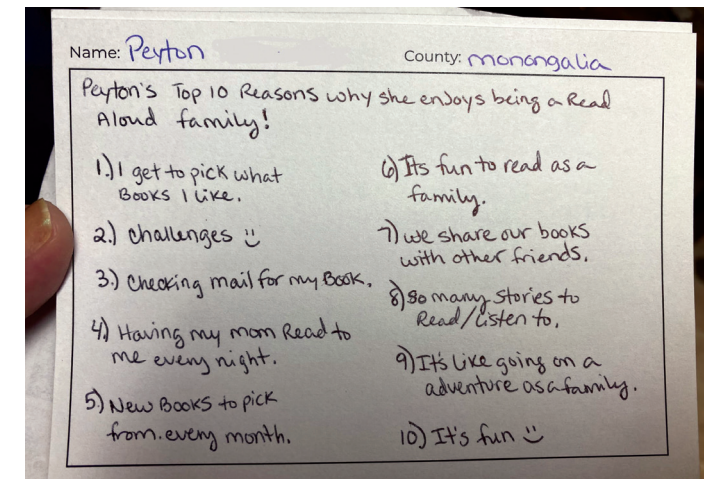 Name: Peyton
County: monongalia
Peyton's Top 10 Reasons why she enjoys being a Read
Aloud family!
1.) I get to pick what
Books I like.
2.) challenges :)
3.) Checking mail for my Book.
4.) Having my mom Read to
me every night.
5.) New Books to pick
from. every month.
6) Its fun to read as a
family.
7) we share our books
with other friends.
8) so many stories to
Read/Listen to.
9) It's like going on a
adventure as a family.
10) It's fun :)